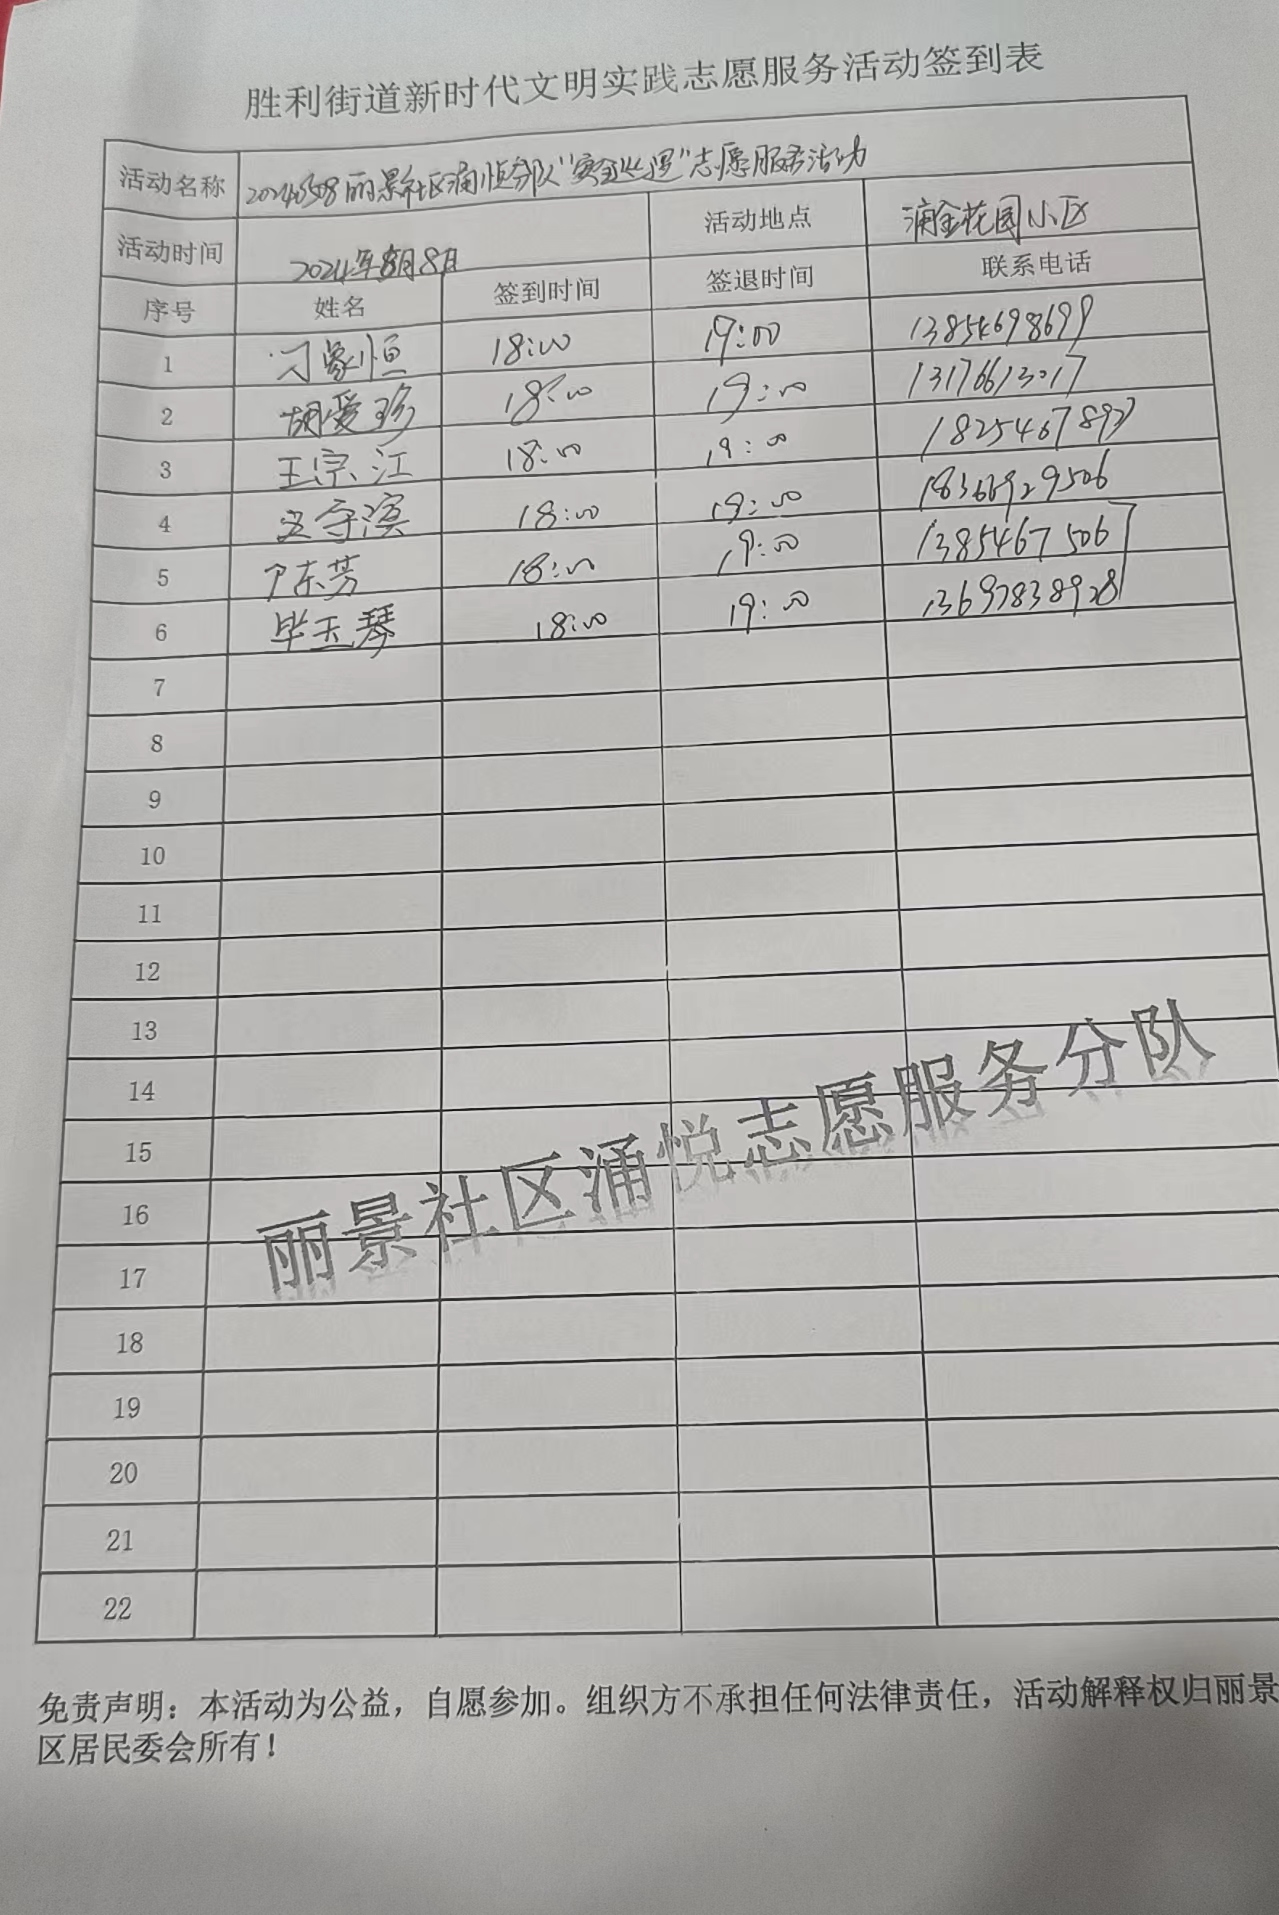 胜利街道新时代文明实践志愿服务活动签到表
活动名称 丽景社区涌恒分队"安全巡逻"志愿服务活动
活动时间 2024年8月8日 活动地点 涌金花园小区
序号 姓名 签到时间 签退时间 联系电话
1 刁象恒 18:00 19:00 13854698699
2 胡爱珍 18:00 19:00 13176613017
3 王宗江 18:00 19:00
4 18:00 19:00
5 尹东芳 18:00 19:00 13854675067
6 毕玉琴 18:00 19:00
7
8
9
10
11
12
13
14
15
16
17
18
19
20
21
22
丽景社区涌悦志愿服务分队
免责声明：本活动为公益，自愿参加。组织方不承担任何法律责任，活动解释权归丽景
区居民委会所有！